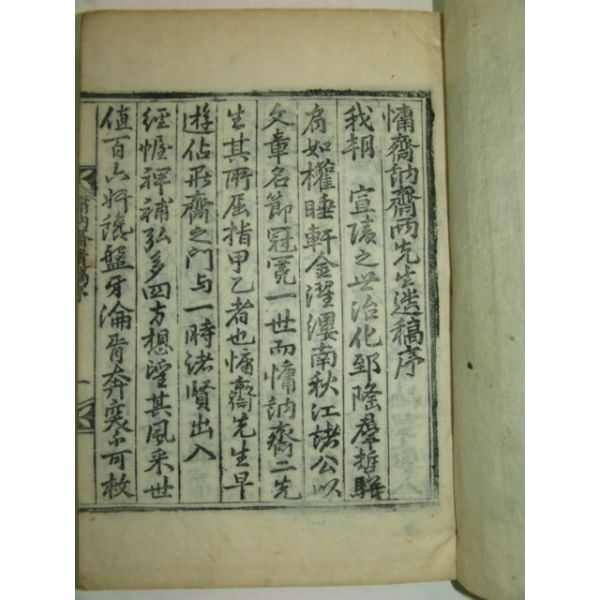 慵齋訥齋兩先生遺稿序
我朝 宣陵之世治化郅隆羣哲騈
肩如權睡軒金濯纓南秋江諸公以
文章名節冠冕一世而慵訥齋二先
生其所屈指甲乙者也慵齋先生早
遊佔畢齋之門与一時诸賢出入
經幄裨補弘多四方想望其風采世
值百六奸讒盤牙淪胥奔突不可枚